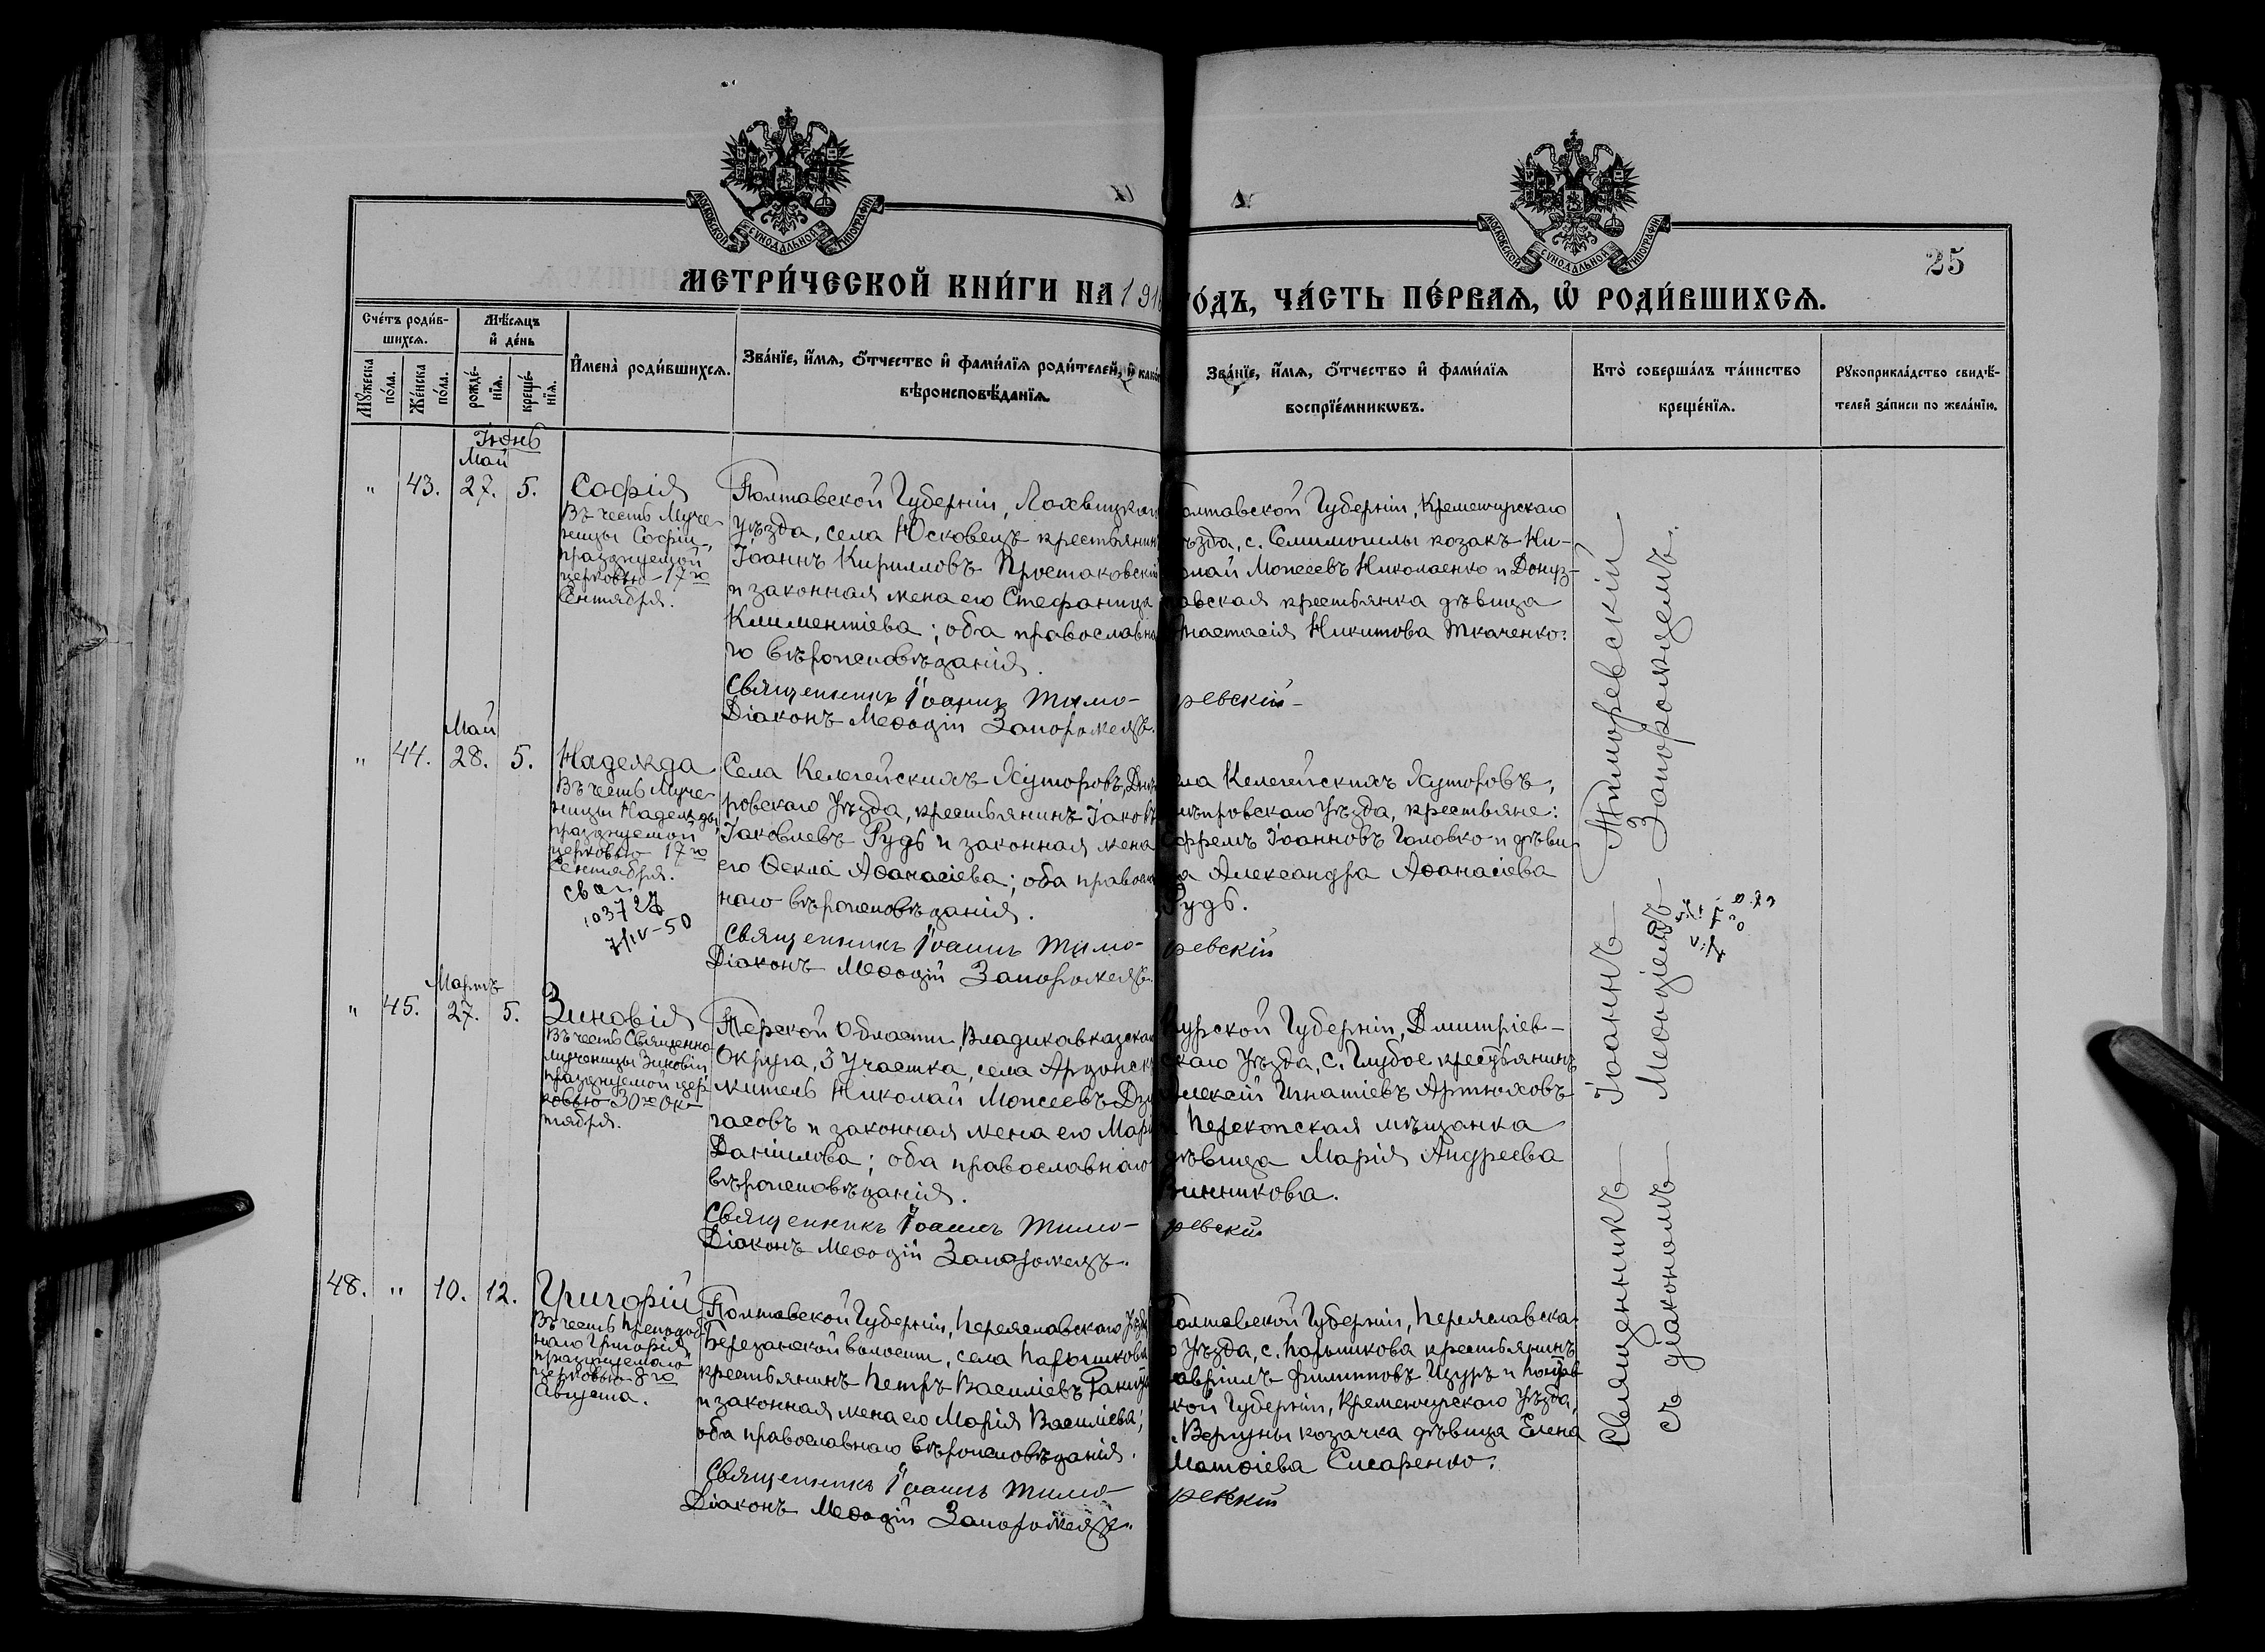 25
МОСКОВСКОЙ СУНОДАЛЬНОЙ ТИПОГРАФІИ
МОСКОВСКОЙ СУНОДАЛЬНОЙ ТИПОГРАФІИ
МЕТРИ́ЧЕСКОЙ КНИ́ГИ НА 191
ГО́ДЪ, ЧА́СТЬ ПЕ́РВАѦ, Ѡ҆ РОДИ́ВШИХСѦ.
Сче́тъ роди́в-
шихсѧ.
Мꙋ́жеска по́ла.
Же́нска по́ла.
Мѣ́сѧцъ
и҆ де́нь
рожде́-
нїѧ.
креще́-
нїѧ.
И҆мена̀ роди́вшихсѧ.
Зва́нїе, и҆́мѧ, ѻ҆́тчество и҆ фами́лїѧ роди́телей, и҆ како́
вѣроисповѣ́данїѧ.
Зва́нїе, и҆́мѧ, ѻ҆́тчество и҆ фами́лїѧ
воспрїе́мникѡвъ.
Кто̀ соверша́лъ та́инство
креще́нїѧ.
Рꙋкоприкла́дство свидѣ́-
телей за́писи по жела́нїю.
Іюнь
Май
" 43. 27. 5.
Софія
Въ честь Муче
ницы Софіи,
празднуемой
церковью 17го
Сентября.
Полтавской Губерніи, Лохвицкаго
уѣзда, села Юсковецъ крестьянинъ
Іоаннъ Кирилловъ Простаковскій
и законная жена его Стефанида
Климентіева; оба православна
го вѣроисповѣданія.
Священникъ Іоаннъ Тимо-
Діаконъ Меѳодій Запорожецъ.
олтавской Губерніи, Кременчугскаго
ѣзда, с. Семимогилы козакъ Ни-
олай Моисеевъ Николаенко и Донуз-
лавская крестьянка дѣвица
Анастасія Никитова Ткаченко:
ревскій
Май
" 44. 28. 5.
Надежда
Въ честь Муче
ницы Надежды
празднуемой
церковью 17го
Сентября.
103727
7/IV-50
Села Келегейскихъ Хуторовъ, Днѣ
ровскаго Уѣзда, крестьянинъ Іаковъ
Іаковлевъ Рудь и законная жена
его Ѳекла Аѳанасіева; оба правосл
наго вѣроисповѣданія.
Священникъ Іоаннъ Тимо-
Діаконъ Меѳодій Запорожецъ.
ела Келегейскихъ Хуторовъ,
нѣпровскаго Уѣзда, крестьяне:
Ефремъ Іоанновъ Головко и дѣви
ца Александра Аѳанасіева
Рудь.
ревскій
Мартъ
" 45. 27. 5.
Зиновія
Въ честь Священно
мученицы Зиновіи
празднуемой цер
ковью 30го Ок-
тября.
Терской Области, Владикавказскаго
Округа, 3 Участка, села Ардонск
житель Николай Моисеевъ Дзу
гасовъ и законная жена его Марія
Даніилова; оба православнаго
вѣроисповѣданія.
Священникъ Іоаннъ Тимо-
Діаконъ Меѳодій Запорожецъ.
Курской Губерніи, Дмитріев-
скаго Уѣзда, с. Глубое крестьянинъ
Алексій Игнатіевъ Артюховъ
и Перекопская мѣщанка
дѣвица Марія Андреева
Винникова.
ревскій
48. " 10. 12.
Григорій
Въ честь Преподоб
наго Григорія
празднуемаго
церковью 8го
Августа.
Полтавской Губерніи, Переяславскаго Уѣзд
Березанской волости, села Парышкова
крестьянинъ Петръ Василіевъ Ракид
и законная жена его Марія Василіева;
оба православнаго вѣроисповѣданія.
Священникъ Іоаннъ Тимо-
Діаконъ Меѳодій Запорожецъ.
Полтавской Губерніи, Переяславска
го Уѣзда, с. Парышкова крестьянинъ
Гавріилъ Филипповъ Цуръ и Полтав
ской Губерніи, Кременчугскаго Уѣзда,
с. Вергуны козачка дѣвица Елена
Матѳіева Писаренко.
ревскій
Священникъ Іоаннъ Тиморевскій
съ діакономъ Меѳодіемъ Запорожцемъ.